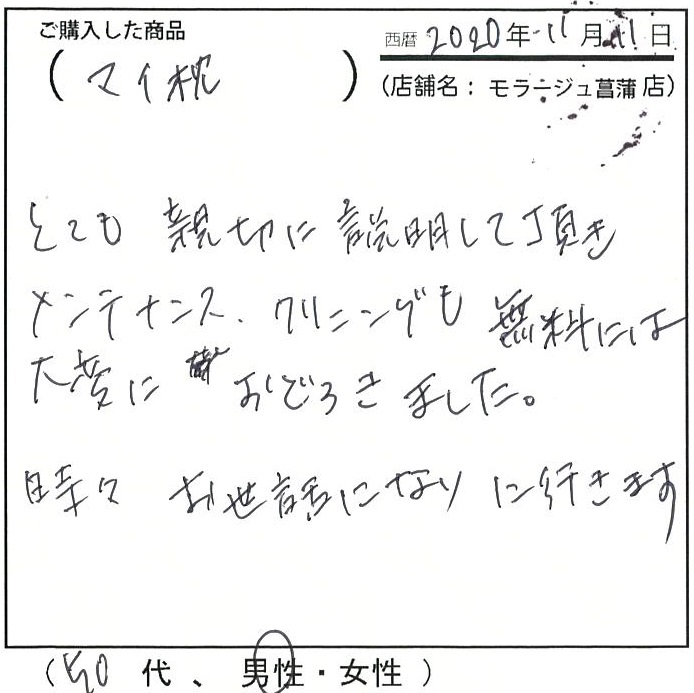 ご購入した商品
西暦 2020年 11月 11日
( マイ枕 )
(店舗名：モラージュ菖蒲 店)
とても 親切に 説明して頂き
メンテナンス、クリーニングも 無料には
大変に おどろきました。
時々 お世話になり に行きます
(50 代 、 男性・女性 )